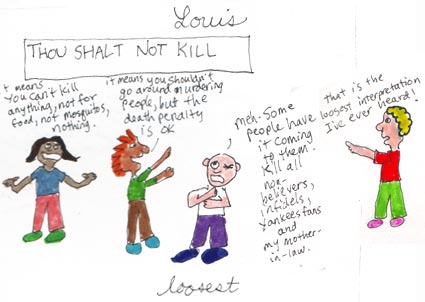 Louis
THOU SHALT NOT KILL
it means
you can't kill
anything, not for
food, not mosquitos,
nothing.
it means you shouldn't
go around murdering
people, but the
death penalty
is OK
meh-Some
people have
it coming
to them.
Kill all
non-
believers,
infidels,
Yankees fans
and
my mother-
in-law.
that is the
loosest interpretation
I've ever heard!
loosest